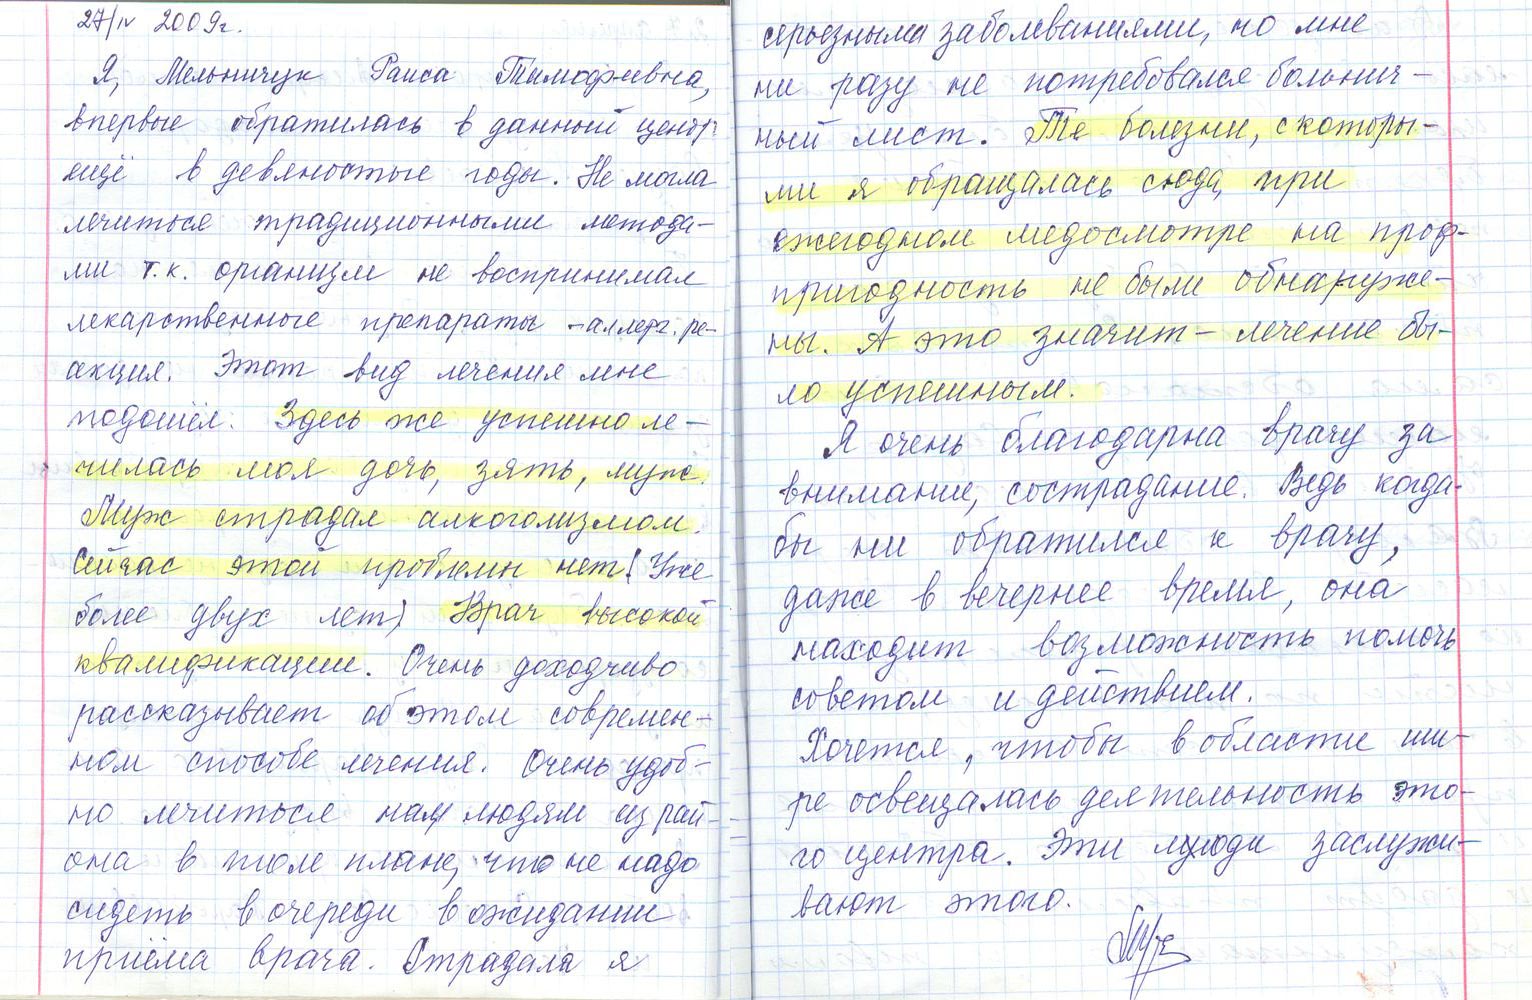 27/IV 2009г.
Я, Мельничук Раиса Тимофеевна,
впервые обратилась в данный центр
ещё в девяностые годы. Не могла
лечиться традиционными метода-
ми т.к. организм не воспринимал
лекарственные препараты - аллерг. ре-
акция. Этот вид лечения мне
подошёл. Здесь же успешно ле-
чилась моя дочь, зять, муж.
Муж страдал алкоголизмом.
Сейчас этой проблемы нет! (Уже
более двух лет) Врач высокой
квалификации. Очень доходчиво
рассказывает об этом современ-
ном способе лечения. Очень удоб-
но лечиться нам людям из рай-
она в том плане, что не надо
сидеть в очереди в ожидании
приёма врача. Страдала я
серьезными заболеваниями, но мне
ни разу не потребовался больнич-
ный лист. Те болезни, с которы-
ми я обращалась сюда, при
ежегодном медосмотре на проф-
пригодность не были обнаруже-
ны. А это значит - лечение бы-
ло успешным.
Я очень благодарна врачу за
внимание, сострадание. Ведь когда-
бы ни обратился к врачу,
даже в вечернее время, она
находит возможность помочь
советом и действием.
Хочется, чтобы в области ши-
ре освещалась деятельность это-
го центра. Эти люди заслужи-
вают этого.